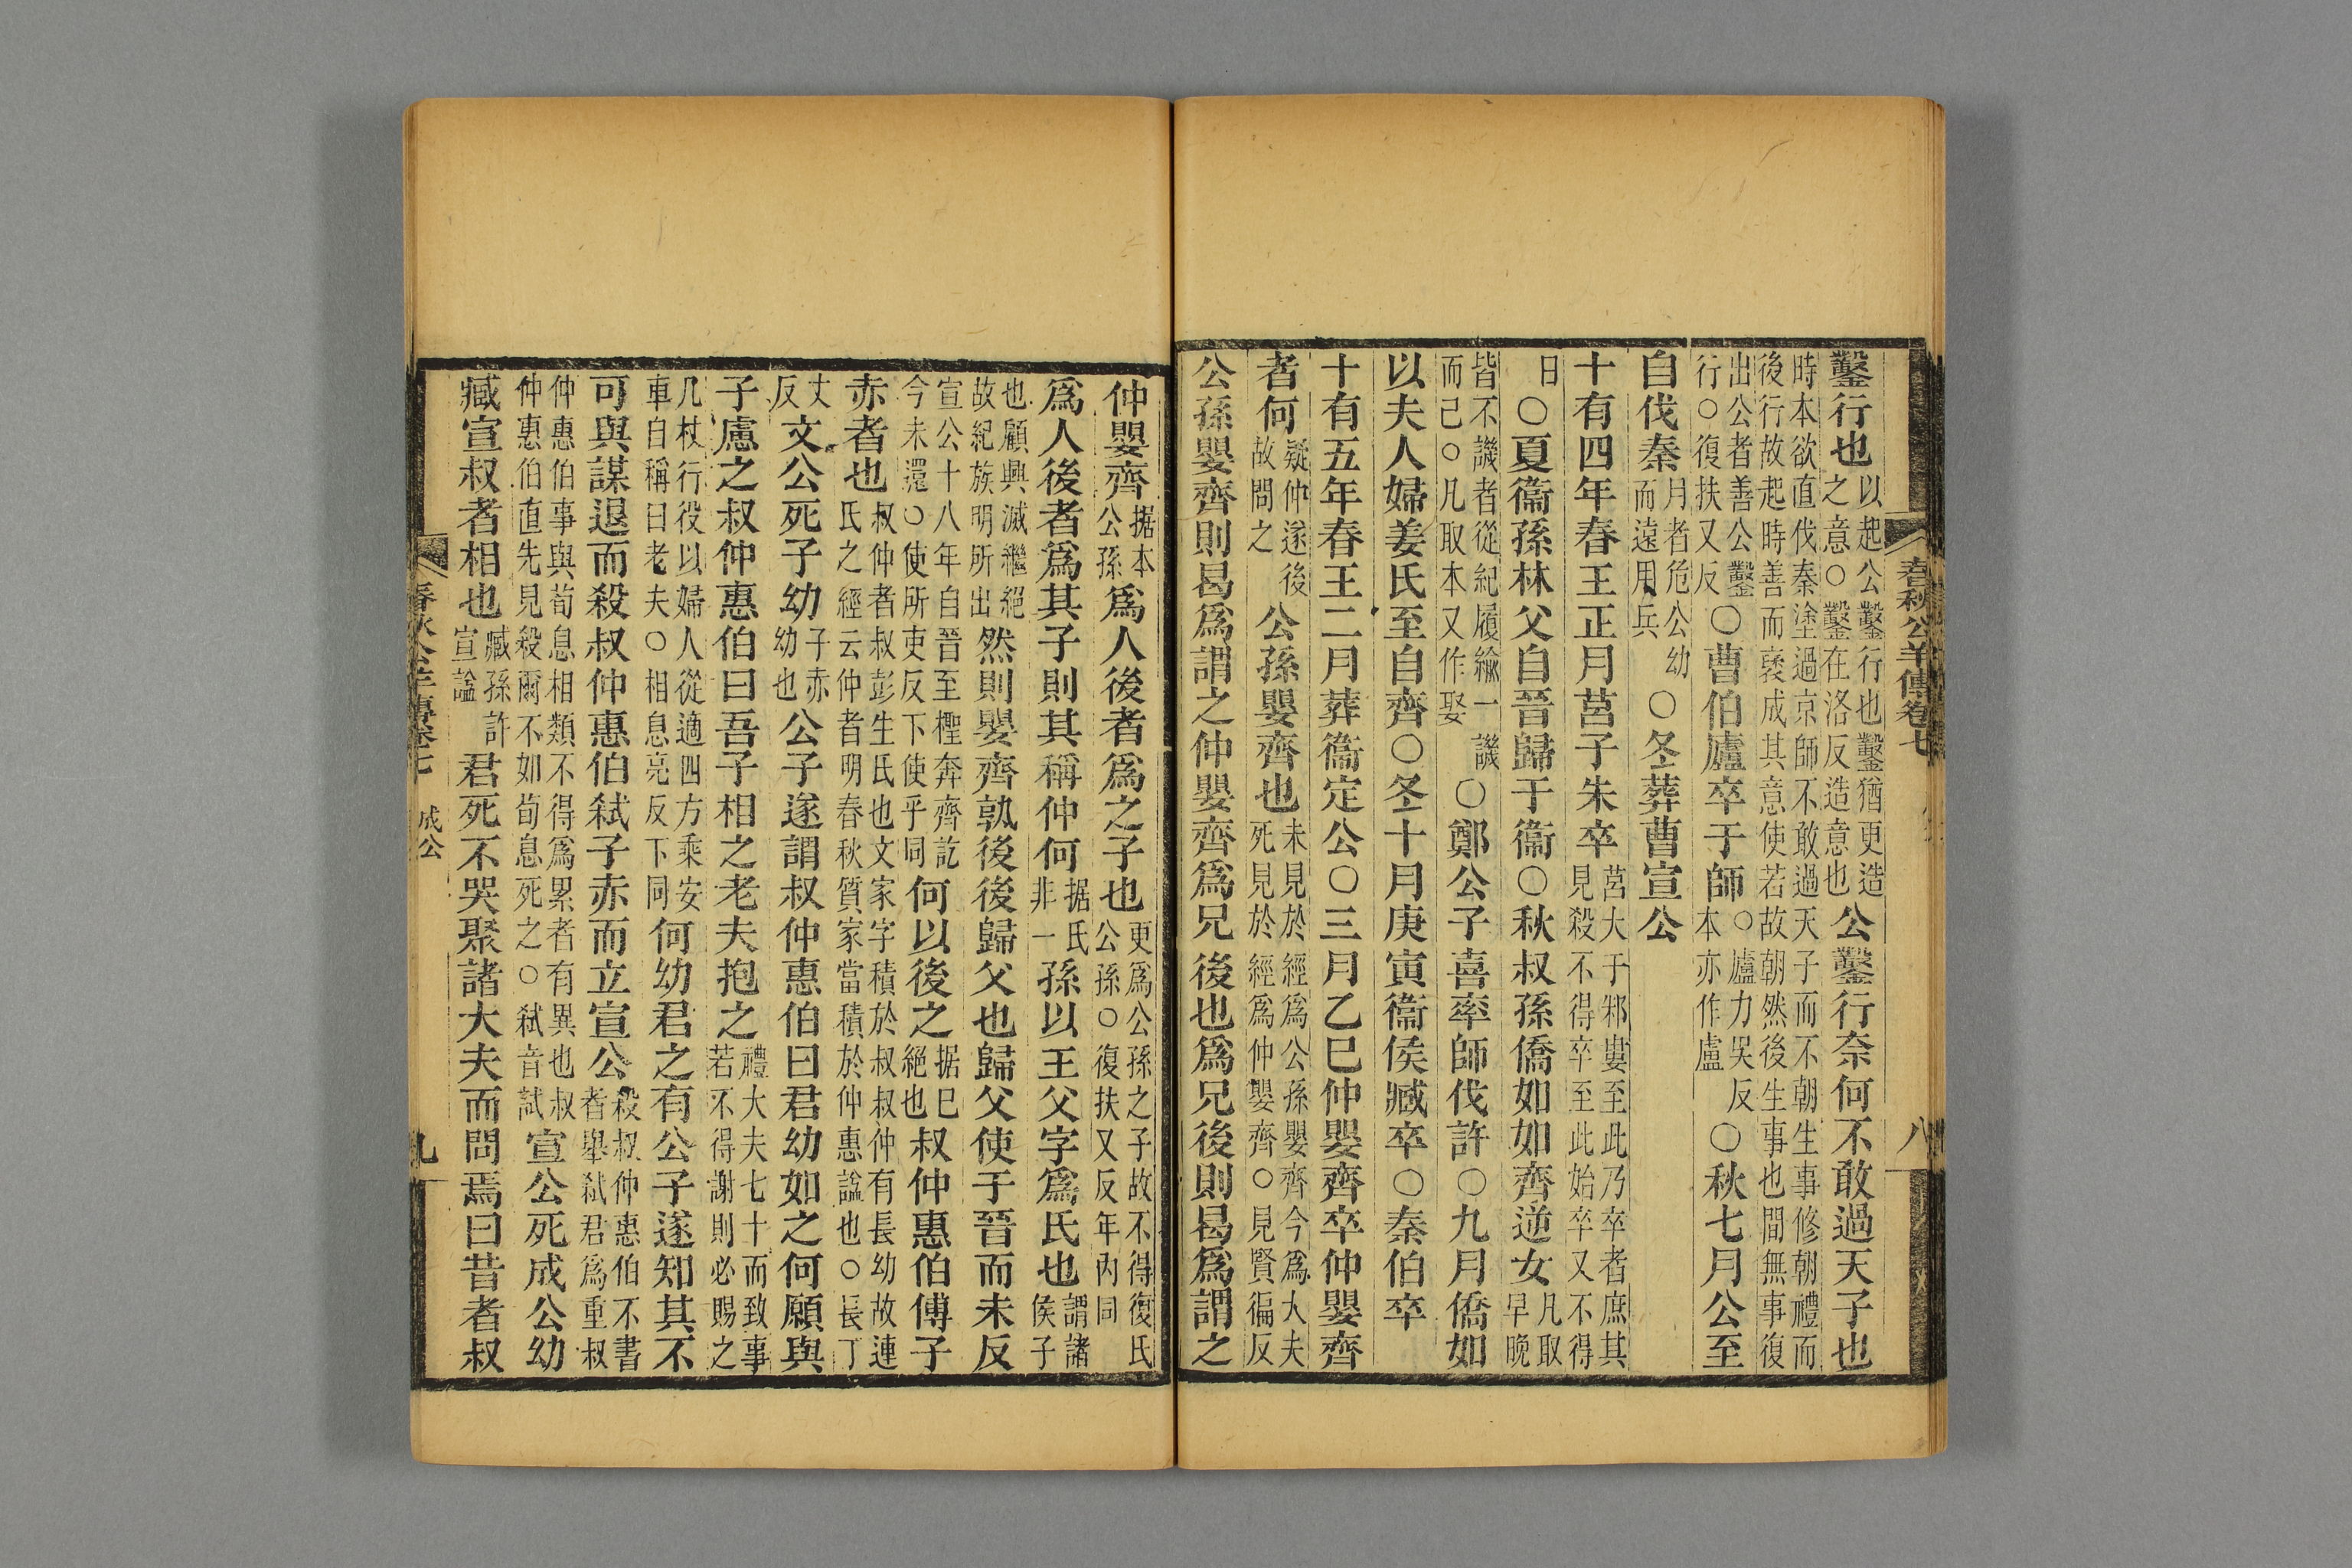 春秋公羊傳卷七
八
鑿行也以起公鑿行也鑿猶更造之意○鑿在洛反造意也公鑿行奈何不敢過天子也
時本欲直伐秦塗過京師不敢過天子而不朝生事修朝禮而後行故起時善而襃成其意使若故朝然後生事也間無事復
出公者善公鑿行○復扶又反○曹伯廬卒于師○廬力吳反本亦作盧○秋七月公至
自伐秦月者危公幼而遠用兵○冬葬曹宣公
十有四年春王正月莒子朱卒莒大于邾婁至此乃卒者庶其見殺不得卒至此始卒又不得
日○夏衞孫林父自晉歸于衞○秋叔孫僑如如齊逆女凡取早晚
皆不譏者從紀履緰一譏而已○凡取本又作娶○鄭公子喜率師伐許○九月僑如
以夫人婦姜氏至自齊○冬十月庚寅衞侯臧卒○秦伯卒
十有五年春王二月葬衞定公○三月乙巳仲嬰齊卒仲嬰齊
者何疑仲遂後故問之公孫嬰齊也未見於經爲公孫嬰齊今爲大夫死見於經爲仲嬰齊○見賢徧反
公孫嬰齊則曷爲謂之仲嬰齊爲兄後也爲兄後則曷爲謂之
仲嬰齊据本公孫爲人後者爲之子也更爲公孫之子故不得復氏公孫○復扶又反年內同
爲人後者爲其子則其稱仲何据氏非一孫以王父字爲氏也謂諸侯子
也顧興滅繼絕故紀族明所出然則嬰齊孰後後歸父也歸父使于晉而未反
宣公十八年自晉至檉奔齊訖今未還○使所吏反下使乎同何以後之据已絕也叔仲惠伯傅子
赤者也叔仲者叔彭生氏也文家字積於叔叔仲有長幼故連氏之經云仲者明春秋質家當積於仲惠諡也○長丁
丈反文公死子幼子赤幼也公子遂謂叔仲惠伯曰君幼如之何願與
子慮之叔仲惠伯曰吾子相之老夫抱之禮大夫七十而致事若不得謝則必賜之
几杖行役以婦人從適四方乘安車自稱曰老夫○相息亮反下同何幼君之有公子遂知其不
可與謀退而殺叔仲惠伯弒子赤而立宣公殺叔仲惠伯不書者舉弒君爲重叔
仲惠伯事與荀息相類不得爲累者有異也叔仲惠伯直先見殺爾不如荀息死之○弒音試宣公死成公幼
臧宣叔者相也臧孫許宣諡君死不哭聚諸大夫而問焉曰昔者叔
春秋公羊傳卷七
成公
九